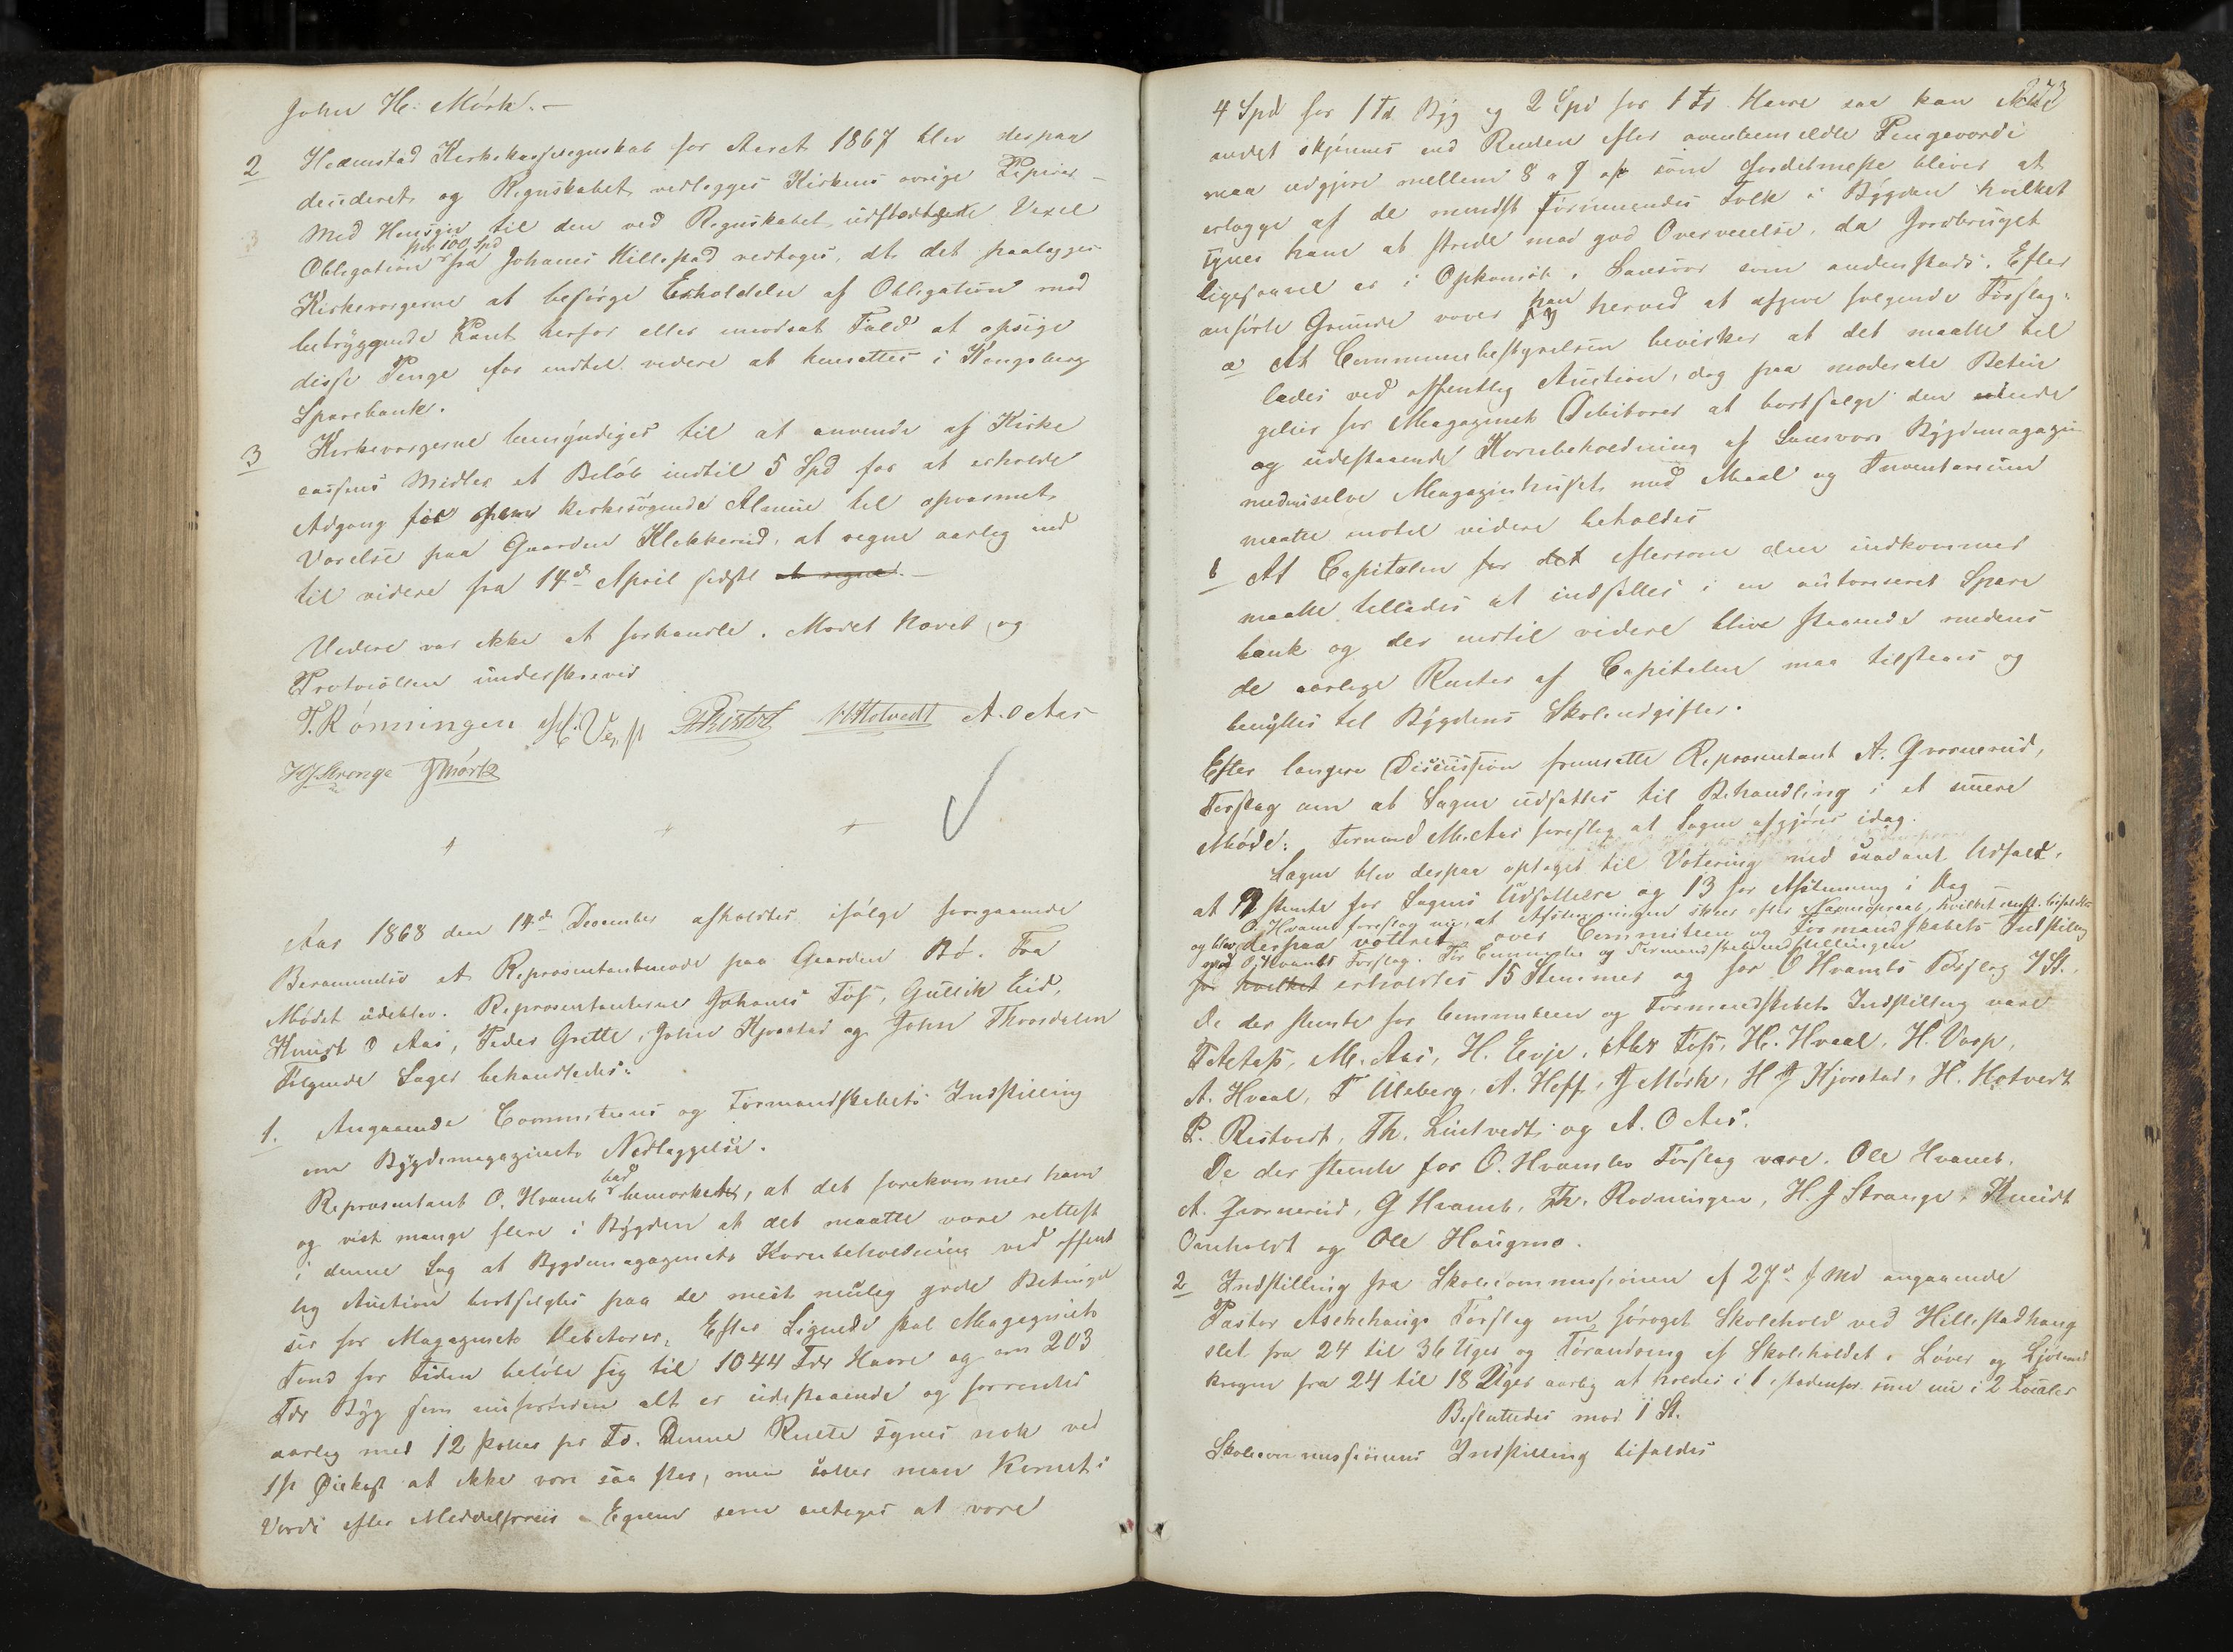 John H. Mörk. —
2 Hedenstad Kirkekasseregnskab for Aaret 1867 blev derpaa
decideret og Regnskabet vedlægges Kirkens øvrige Papirer —
3 Med Hensyn til den ved Regnskabet Vexel
Obligation paa 100 Spd fra Johanes Hillestad vedtoges, at det paalægges
Kirkeværgerne at besørge Erholdelse af Obligation med
betryggende Pant herfor eller i modsat Fald at opsige
disse Penge for indtil videre at hensættes i Kongsberg
Sparebank.
3 Kirkeværgerne bemyndiges til at anvende af Kirke
cassens Midler et Beløb indtil 5 Spd for at erholde
Adgang for kirkesøgende Almue til opvarmet
Værelse paa Gaarden Klekkerud, at regne aarlig ind
til videre fra 14de April sidstl at regne. —
Videre var ikke at forhandle. Mødet hævet og
Protocollen underskrevet
T. Rønningen H. Verp PRistvet HHotvedt A. O Aas
HJStrange JMørk
Aar 1868 den 14de December afholdtes ifølge foregaaende
Berammelse et Repræsentantmøde paa Gaarden Bø. Fra
Mødet udeblev Repræsentanterne Johanes Fos, Gullik Eid,
Knudt O Aas, Peder Grette, John Kjørstad og John Thorsdalen
Følgende Sager behandledes:
1. Angaaende Committeens og Formandskabets Indstilling
om Bygdemagazinets Nedlæggelse.
Repræsentant O. Hvamb had bemærket, at det forekommer ham
og vist mange flere i Bygden at det maatte være rettest
i denne Sag at Bygdemagazinets Kornbeholdning ved offent
lig Auction bortsælgtes paa de mest mulig gode Betingel
ser for Magazinets Debitorer. Efter Lignende skal Magazinets
Fond for Tiden beløbe sig til 1044 Tdr Havre og om 203
Tdr Byg som alt er udestaaende og forrentes
aarlig med 12 Potter pr Td. Denne Rente synes nok ved
1ste Øiekast at ikke være saa stor, men sætter man Kornets
Værdi efter Middelpriis i Egnen som antages at være
4 Spd for 1 Td. Byg og 2 Spd for 1 Td Havre saa kan
andet skjønnes end Renten efter ovenbemeldte Pengeværdi
maa udgjøre mellem 8 a 9 som fordetmeste bliver at
erlægge af de mindst formuendes Folk i Bygden hvilket
synes ham at stride mod god Overveielse, da Jordbruget
ligesaavel er i Opkomst i Sandsvær som andenstads. Efter
anførte Grunde vover han herved at afgive følgende Forslag:
a At Communebestyrelsen bevirker at det maatte til
lades ved offentlig Auction, dog paa moderate Betin
gelser for Magazinets Debitorer at bortsælge den inde
og udestaaende Kornbeholdning af Sandsværs Bygdemagazin
medens selve Magazinhuset med Maal og Inventarium
maatte indtil videre beholdes
b At Capitalen for det eftersom den indkommer
maatte tillades at indsættes i en autoriseret Spare
bank og der indtil videre blive staaende medens
de aarlige Renter af Capitalen maa tilstaaes og
benyttes til Bygdens Skoleudgifter.
Efter længere Discussion fremsatte Repræsentant A. Gvornerud,
Forslag om at Sagen udsættes til Behandling i et senere
Møde: Formand M. Aas foreslog at Sagen afgjøres idag.
Sagen blev derpaa optaget til Votering med saadant Udfald,
at 9 stemte for Sagens Udsættelse og 13 for Afstemning i Dag
O. Hvamb foreslog nu, at Afstemningen skeer efter Navneopraab, hvilket enst. bifaldtes
og blev derpaa votteret over Committeens og Formandskabets Indstilling
og O. Hvambs Forslag. For Committee og Formandskabsindstillingen
for hvilket erholdtes 15 Stemmer og for O Hvambs Forslag 7 St.
De der stemte for Committeen og Formandskabets Indstilling vare
M. Aas, H. Evje, Foss, H. Hvaal, H. Verp,
A. Hvaal, T Ulleberg, A. Hoff, J Mørk, H J Kjørstad, H. Hotvedt
P. Ristvedt, Th. Lintvedt og A. O Aas.
De der stemte for O. Hvambs Forslag vare. Ole Hvamb,
A. Gvornerud, G Hvamb, Th. Rønningen, H. J Strange, Knudt
Omholdt og Ole Haugmo.
2 Indstilling fra Skolecommissionen af 27de f. Md angaaende
Pastor Aschehougs Forslag om forøget Skolehold ved Hillestadhaug
slet fra 24 til 36 Uger og Forandring af Skoleholdet i Løver og
krogen fra 24 til 18 Uger aarlig at holdes i 1 istedenfor som nu i 2 Localer
Besluttedes mod 1 St.
Skolecommissionens Indstilling bifaldes